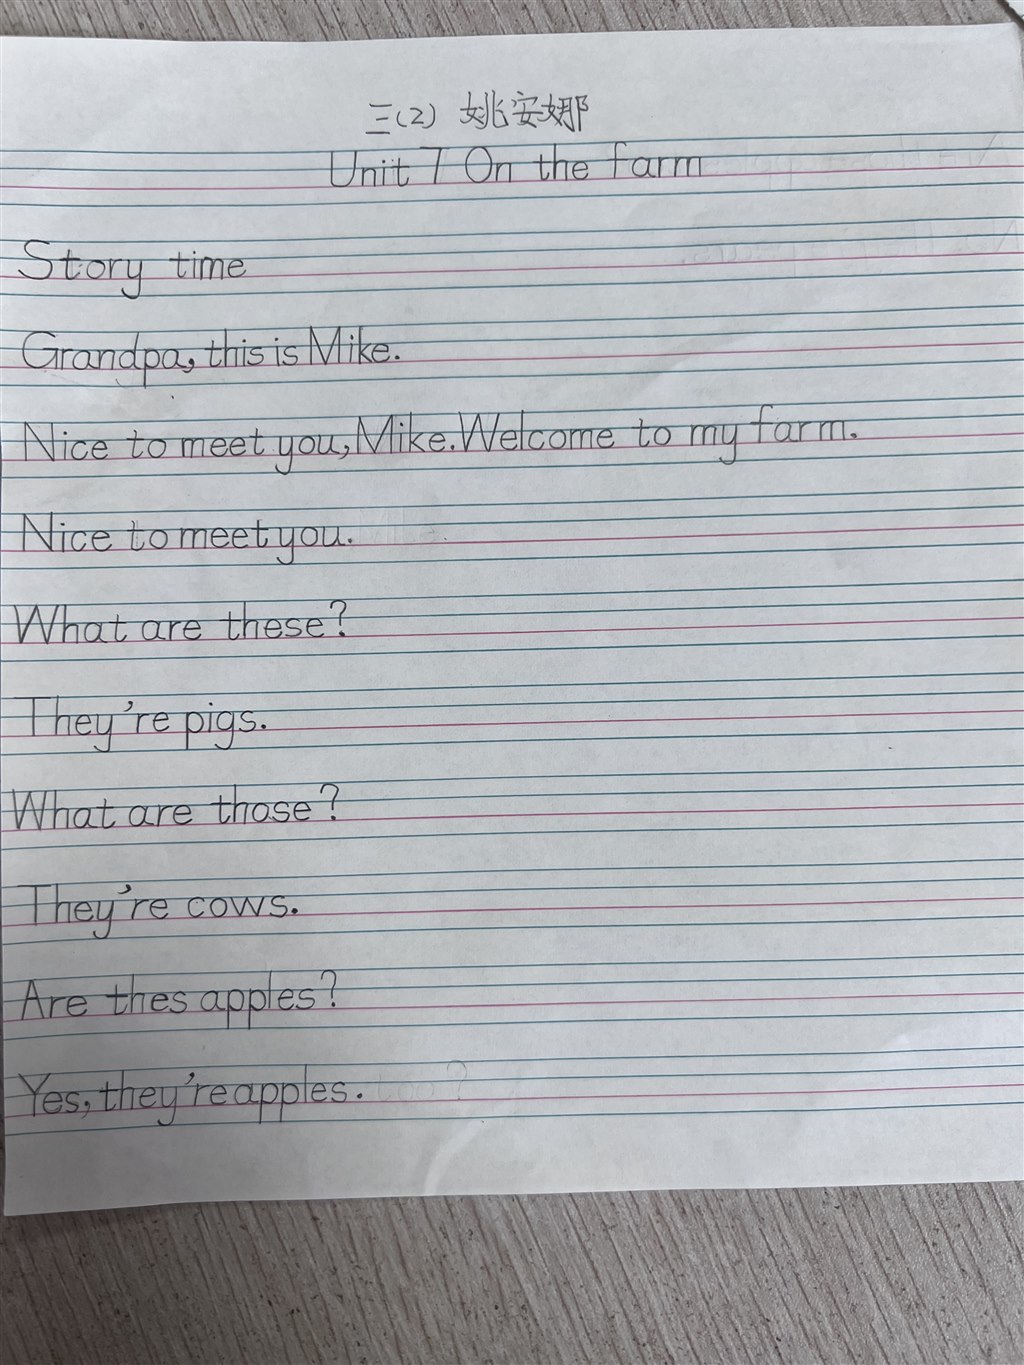 三(2) 姚安娜
Unit 7 On the farm
Story time
Grandpa, this is Mike.
Nice to meet you, Mike. Welcome to my farm.
Nice to meet you.
What are these?
They're pigs.
What are those?
They're cows.
Are thes apples?
Yes, they're apples.